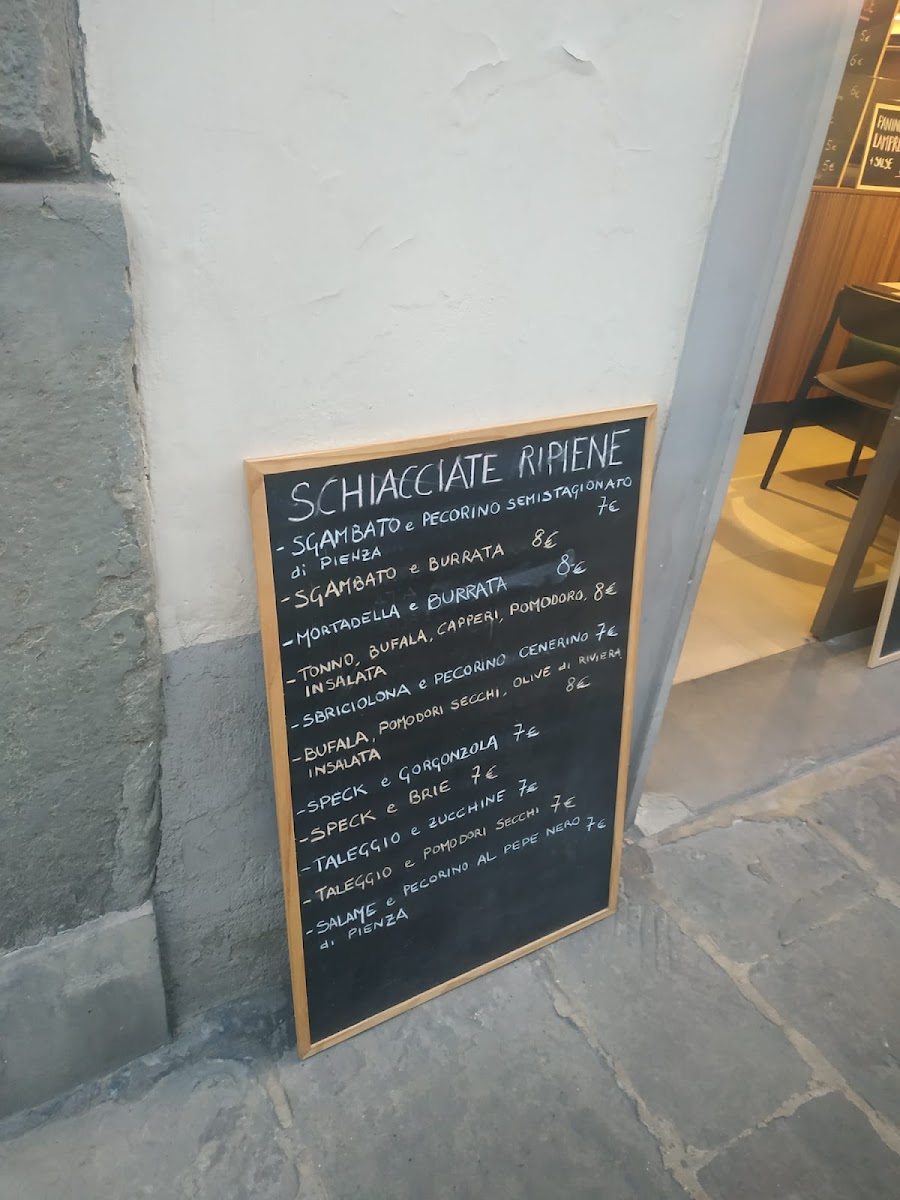 SCHIACCIATE RIPIENE
- SGAMBATO e PECORINO SEMISTAGIONATO
di PIENZA 7€
- SGAMBATO e BURRATA 8€
- MORTADELLA e BURRATA 8€
- TONNO, BUFALA, CAPPERI, POMODORO, 8€
INSALATA
- SBRICIOLONA e PECORINO CENERINO 7€
- BUFALA, POMODORI SECCHI, OLIVE di RIVIERA
INSALATA 8€
- SPECK e GORGONZOLA 7€
- SPECK e BRIE 7€
- TALEGGIO e ZUCCHINE 7€
- TALEGGIO e POMODORI SECCHI 7€
- SALAME e PECORINO AL PEPE NERO 7€
di PIENZA
5€
6€
5€
5€
PANIN
LAMPRE
+ SALSE